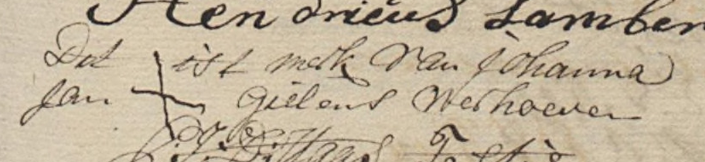 Hendricus Lamber
Dit ist merk van johanna
Jan Gielens Verhoeven